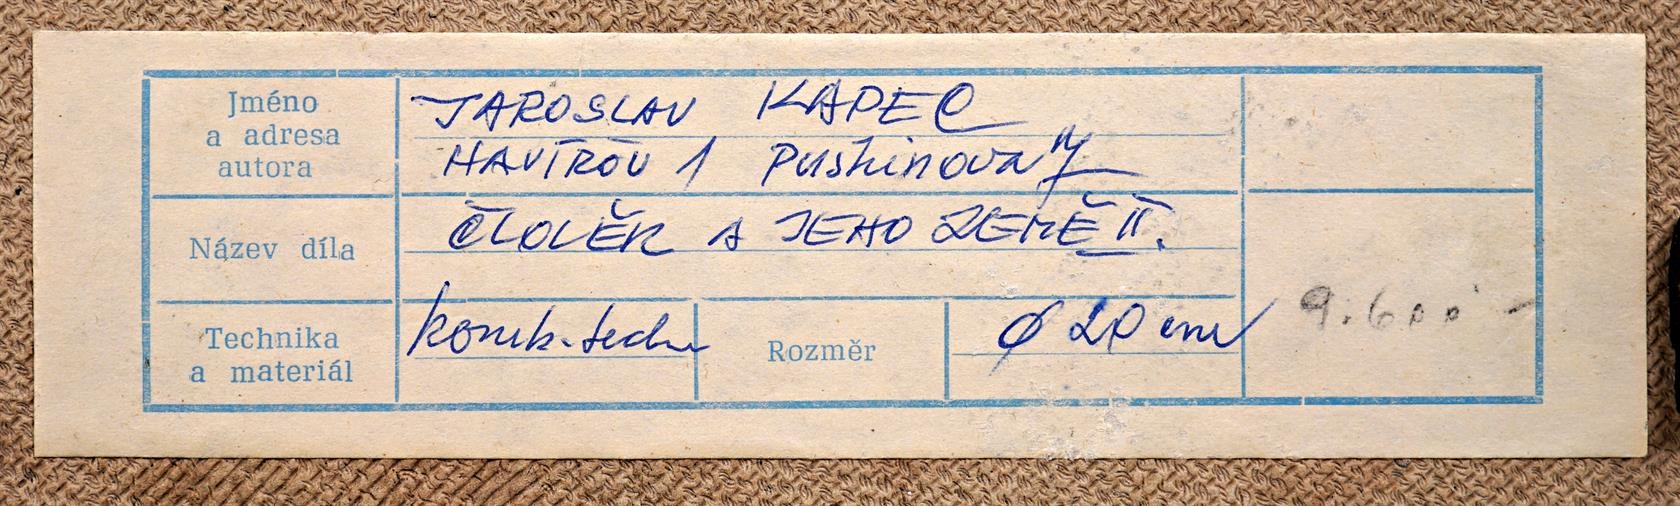 Jméno
a adresa
autora
JAROSLAV KAPEC
HAVÍŘOV 1 Puškinova 7
Název díla
ČLOVĚK A JEHO ZEMĚ II.
Technika
a materiál
komb. techn
Rozměr
Ø 20 cm
9.600 -